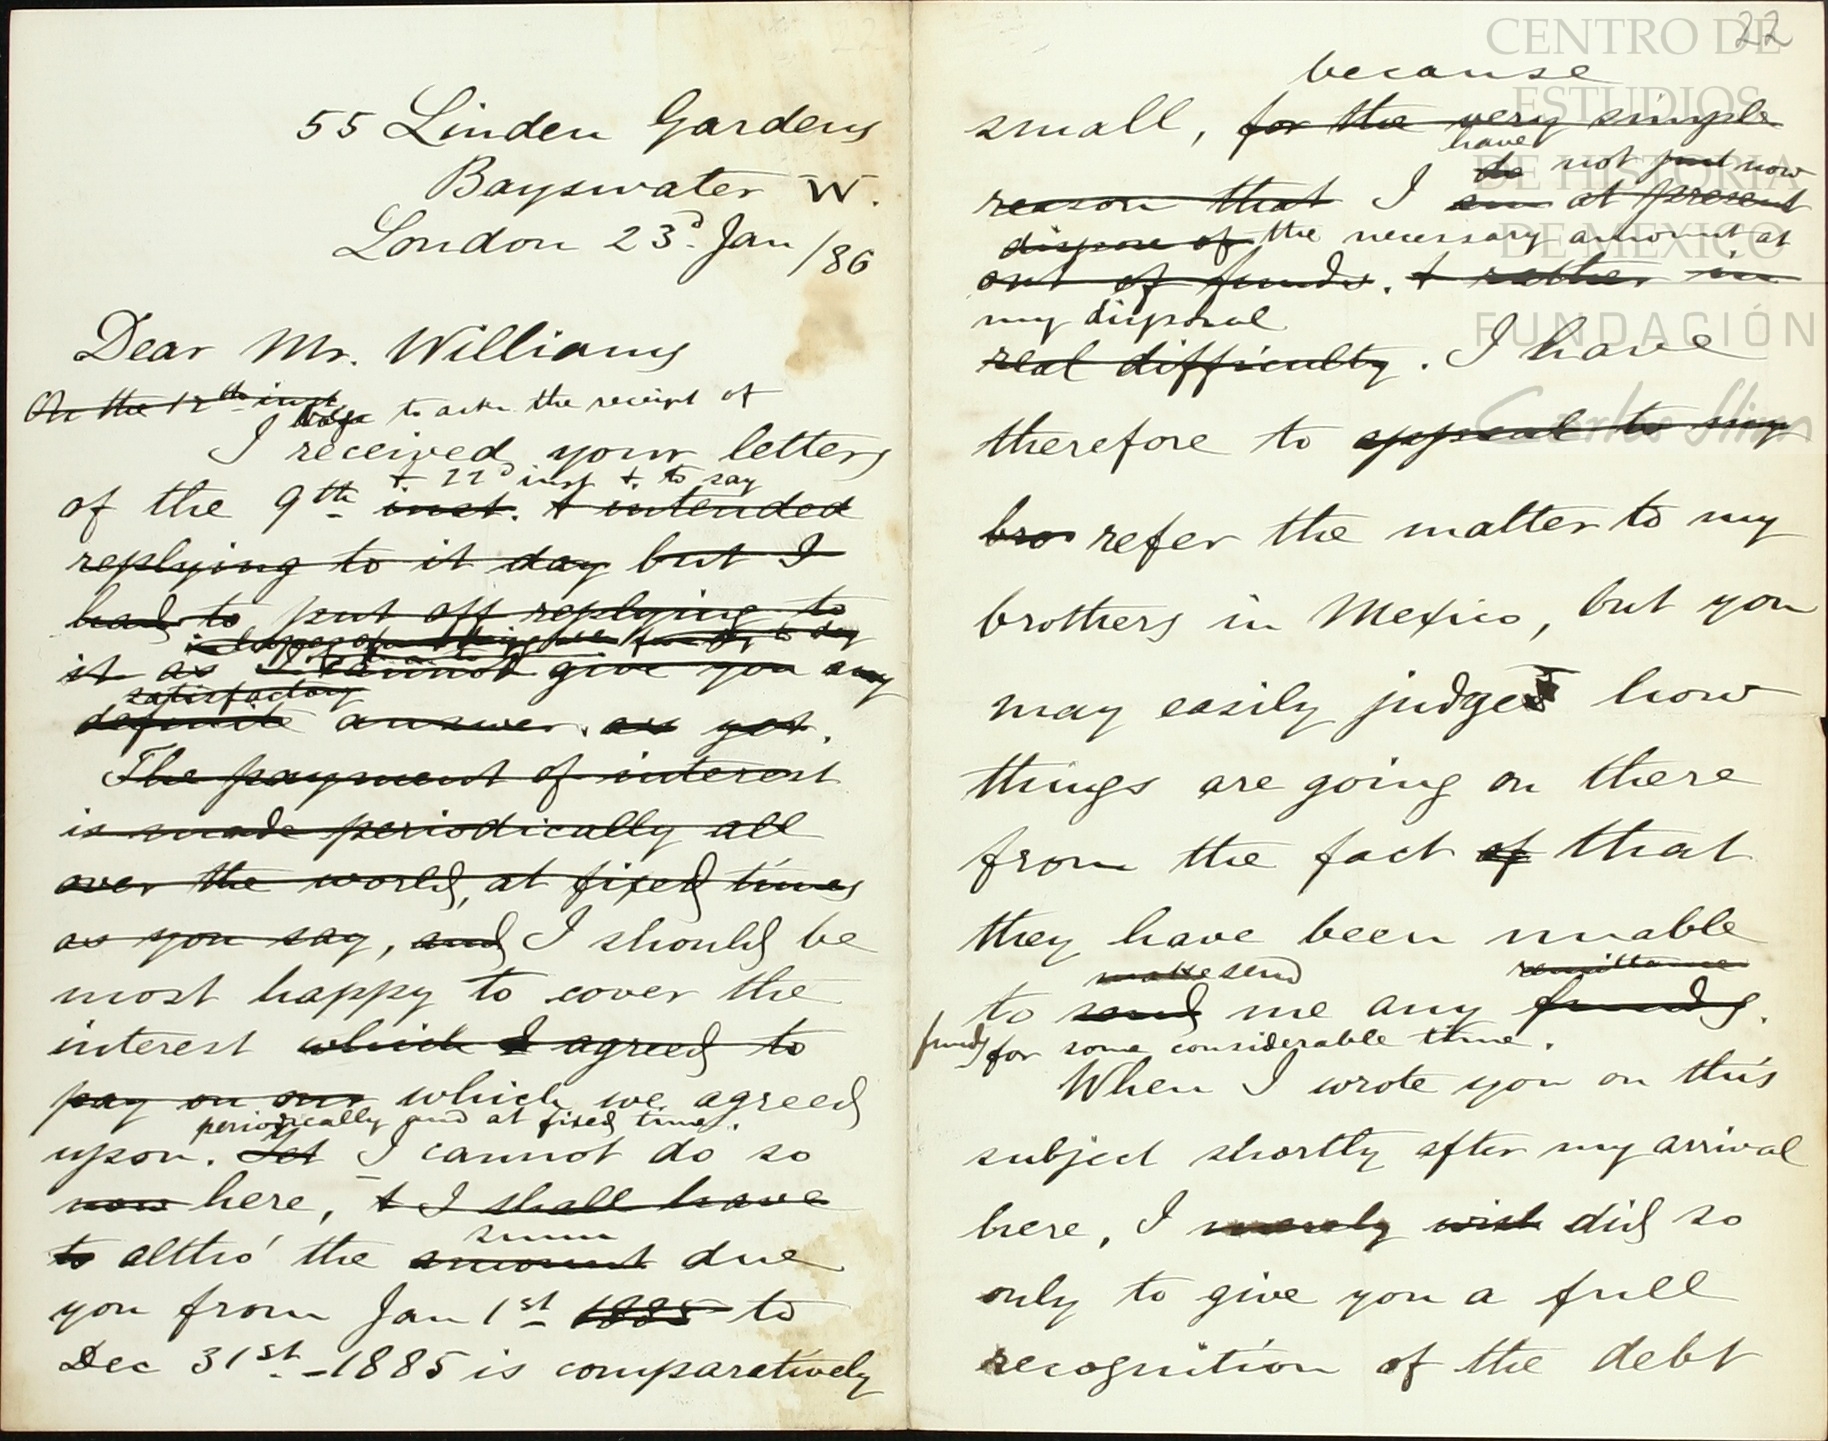 22
55 Linden Gardens
Bayswater W.
London 23d. Jan /86
Dear Mr. Williams
On the 12th inst
I beg to ack. the receipt of
received your letters
+ 22d inst + to say
of the 9th inst. + intended
replying to it day but I
had to put off replying to
to day
it as I cannot give you any
satisfactory
definite answer as yet.
The payment of interest
is made periodically all
over the world, at fixed times
as you say, and I should be
most happy to cover the
interest which I agreed to
pay on our which we agreed
periodically and at fixed times.
upon. Yet I cannot do so
now here, + I shall have
sum
to altho' the amount due
you from Jan 1st 1885 to
Dec 31st - 1885 is comparatively
22
because
small, for the very simple
have
do not just now
reason that I am at present
dispose of the necessary amount at
out of funds. + rather in
my disposal
real difficulty. I have
therefore to appeal to my
bro refer the matter to my
brothers in Mexico, but you
may easily judge how
things are going on there
from the fact of that
they have been unable
make send remittance
to send me any funds.
funds for some considerable time.
When I wrote you on this
subject shortly after my arrival
here, I merely wish did so
only to give you a full
recognition of the debt
CENTRO DE
ESTUDIOS
DE HISTORIA
DE MEXICO
FUNDACIÓN
Carlos Slim